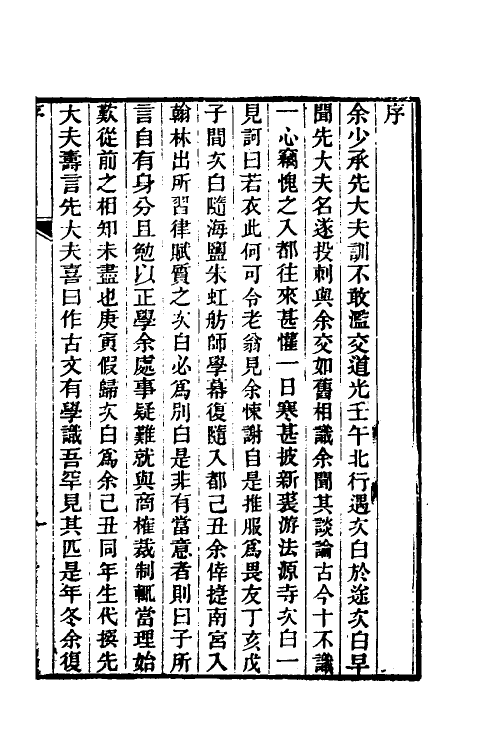 序
余少承先大夫訓不敢濫交道光壬午北行遇亥白於途亥白早
聞先大夫名遂投刺與余交如舊相識余聞其談論古今十不識
一心竊愧之入都往來甚懽一日寒甚披新裘游法源寺亥白一
見訶曰若衣此何可令老翁見余悚謝自是推服爲畏友丁亥戊
子間亥白隨海鹽朱虹舫師學幕復隨入都己丑余倖捷南宮入
翰林出所習律賦質之亥白必爲別白是非有當意者則曰子所
言自有身分且勉以正學余處事疑難就與商榷裁制輒當理始
歎從前之相知未盡也庚寅假歸亥白爲余己丑同年生代撰先
大夫壽言先大夫喜曰作古文有學識吾罕見其匹是年冬余復